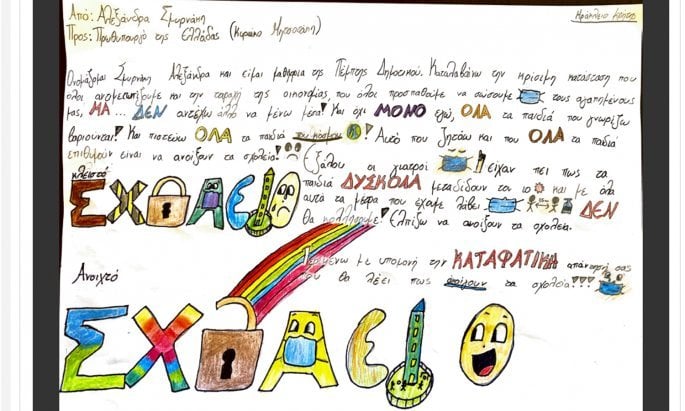 Ηράκλειο Κρήτης
Από: Αλεξάνδρα Σμυρνάκη
Προς: Πρωθυπουργό της Ελλάδας (Κυριάκο Μητσοτάκη)
Ονομάζομαι Σμυρνάκη Αλεξάνδρα και είμαι μαθήτρια της Πέμπτης Δημοτικού. Καταλαβαίνω την κρίσιμη κατάσταση που
όλοι αντιμετωπίζουμε και την ταραχή της οικονομίας, που όλοι προσπαθούμε να σώσουμε τους αγαπημένους
μας, ΜΑ ... ΔΕΝ αντέχω άλλο να μένω μέσα! Και όχι ΜΟΝΟ εγώ, ΟΛΑ τα παιδιά που γνωρίζω
βαριούνται! Και πιστεύω ΟΛΑ τα παιδιά του κόσμου! Αυτό που ζητάω και που ΟΛΑ τα παιδιά
επιθυμούν είναι να ανοίξουν τα σχολεία! Εξάλλου οι γιατροί είχαν πει πως τα
κλειστό
ΣΧΟΛΕΙΟ
παιδιά ΔΥΣΚΟΛΑ μεταδίδουν τον ιο και με όλα
αυτά τα μέτρα που έχαμε λάβει ΔΕΝ
θα κολλήσουμε! Ελπίζω να ανοίξουν τα σχολεία.
Περιμένω με υπομονή την ΚΑΤΑΦΑΤΙΚΗ απάντησή σας
που θα λέει πως ανοίγουν τα σχολεία!!!
Ανοιχτό
ΣΧΟΛΕΙΟ